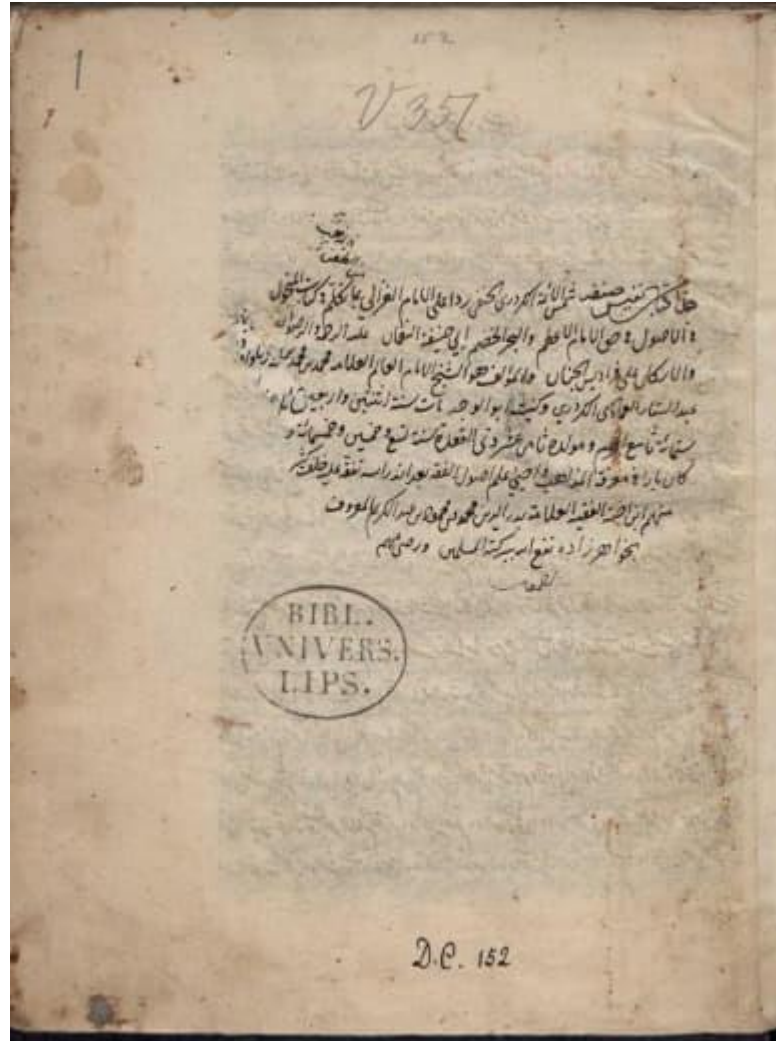 152
1
V 351
هذا كتاب نفيس صنفه شمس الائمة الكردري الحنفي ردا على الامام الغزالي بما تكلم في كتاب المنخول
في الاصول في حق الامام الاعظم والبحر الخضم ابي حنيفة النعمان عليه الرحمة والرضوان
والمؤلف هو الشيخ الامام العالم العلامة محمد بن محمد
عبد الستار العمادي الكردري وكنيته ابو الوجد مات سنة اثنتين واربعين
ستمائة تاسع المحرم ومولده ثامن عشر ذي القعدة سنة تسع وخمسين وخمسمائة و
كان بارعا في معرفة المذاهب واحيى علم اصول الفقه بعد اندراسه تفقه عليه خلق كثير
منهم ابن اخته الفقيه العلامة بدر الدين محمد بن محمود بن عبد الكريم المعروف
بخواهر زاده نفع الله ببركته المسلمين ورضي عنهم
BIBL.
VNIVERS.
LIPS.
D.C. 152